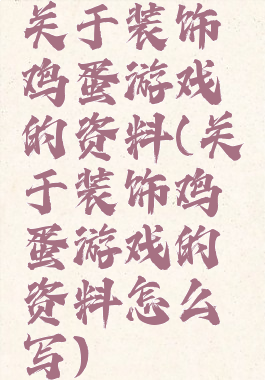 关于装饰
鸡蛋游戏
的资料(关
于装饰鸡
蛋游戏的
资料怎么
写)